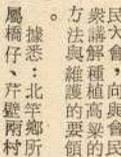 民大會，向與會民
眾講解種植高粱的
方法與維護的要領
。
據悉：北竿鄉所
屬橋仔、芹壁兩村